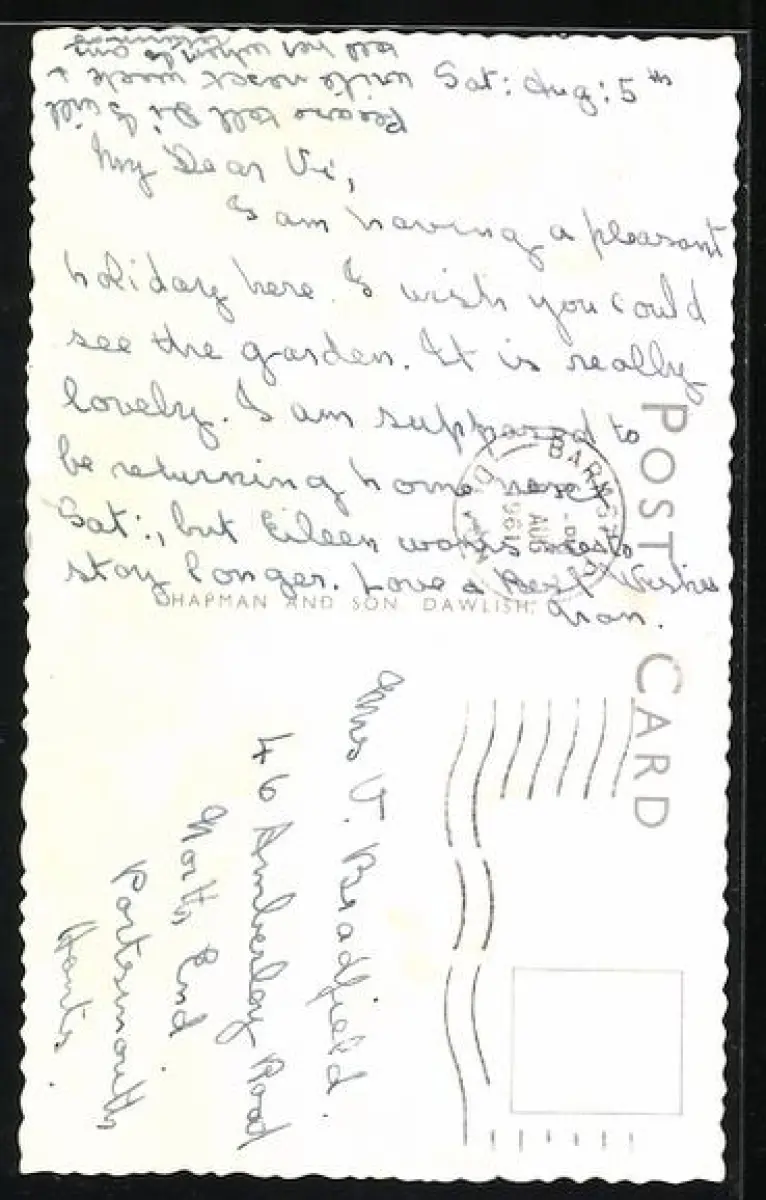 Sat: Aug: 5th
My Dear Vi,
I am having a pleasant
holiday here. I wish you could
see the garden. It is really
lovely. I am supposed to
be returning home next
Sat:, but Eileen wants me to
stay longer. Love & Best Wishes
Gran.
Please tell Di I will
write next week &
tell her when I am
returning
POST CARD
CHAPMAN AND SON DAWLISH.
BARNSTAPLE
AUG
1961
DEVON
Mrs V. Bradfield.
46 Amberley Road
North End
Portsmouth
Hants.